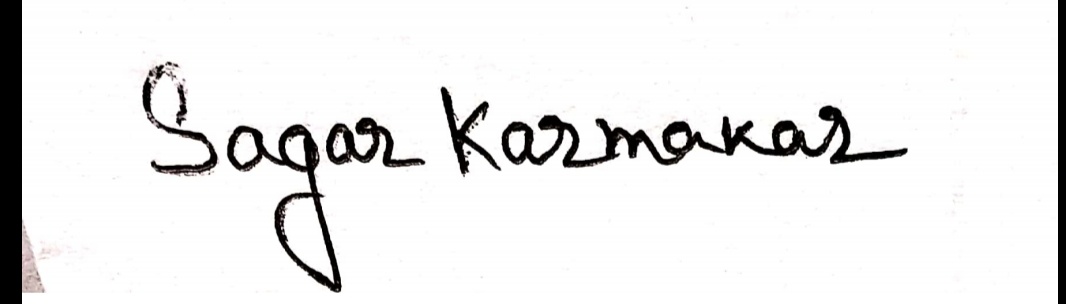 Sagar Karmakar